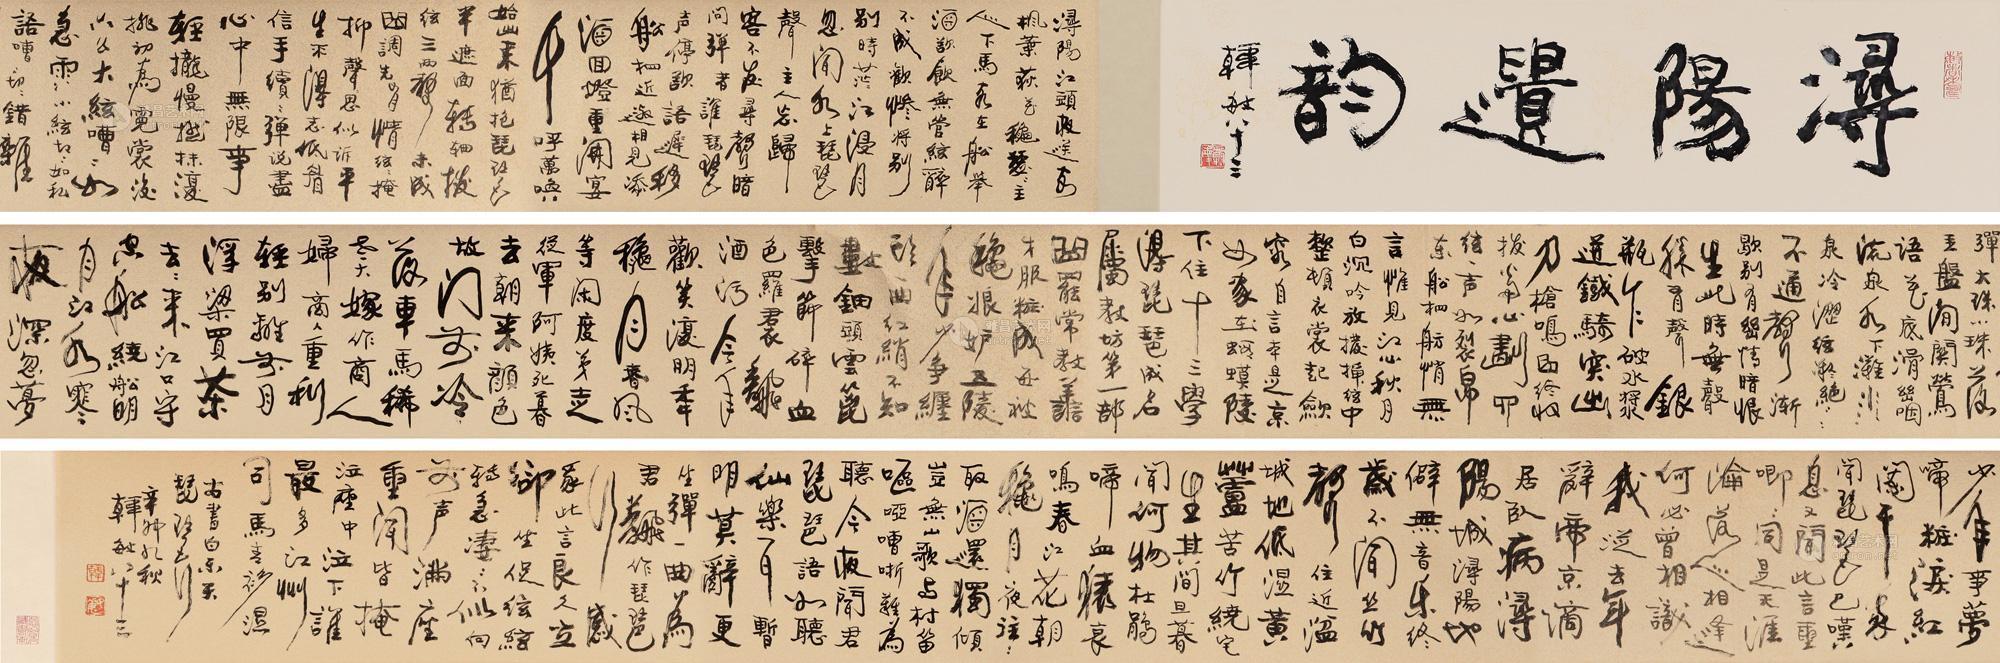 潯陽遺韵
韓敏八十三
潯陽江頭夜送客
楓葉荻花穐瑟〻主
人下馬客在船舉
酒欲飲無管絃醉
不成歡慘將別
別時茫〻江浸月
忽聞水上琵琶
聲主人忘歸
客不發尋聲暗
問彈者誰琵琶
声停欲語遲移
船相近邀相見添
酒回燈重開宴
千呼萬喚
始出來猶抱琵琶
半遮面轉軸撥
絃三兩聲未成
曲調先有情絃〻掩
抑聲〻思似訴平
生不得志低眉
信手續〻彈說盡
心中無限事
輕攏慢撚抹復
挑初為霓裳後
六幺大絃嘈〻如
急雨小絃切〻如私
語嘈〻切〻錯雜
彈大珠小珠落
玉盤間關鶯
語花底滑幽咽
流泉水下灘水
泉冷澀絃凝絕〻
不通聲漸
歇別有幽情暗恨
生此時無聲
勝有聲銀
瓶乍破水漿
迸鐵騎突出
刀槍鳴曲終收
撥當心劃四
絃声如裂帛
東船西舫悄無
言惟見江心秋月
白沉吟放撥插絃中
整頓衣裳起歛
容自言本是京
女家在蝦蟆陵
下住十三學
得琵琶成名
屬教坊第一部
曲罷常教善
才服粧成每被
穐娘妒五陵
年少爭纏
頭一曲紅綃不知
數鈿頭雲篦
擊節碎血
色羅裙翻
酒污今年
歡笑復明年
穐月春風
等閑度弟走
從軍阿姨死暮
去朝來顏色
故門前冷
落車馬稀
老大嫁作商人
婦商人重利
輕別離前月
浮梁買茶
去〻來江口守
空船繞船明
月江水寒
夜深忽夢
少年事夢
啼粧淚紅
闌干我
聞琵琶已嘆
息又聞此言重
唧〻同是天涯
淪落人相逢
何必曾相識
我從去年
辭帝京謫
居臥病潯
陽城潯陽地
僻無音樂終
歲不聞絲竹
聲住近湓
城地低濕黃
蘆苦竹繞宅
生其間旦暮
聞何物杜鵑
啼血猿哀
鳴春江花朝
穐月夜往〻
取酒還獨傾
豈無山歌與村笛
嘔啞嘈哳難為
聽今夜聞君
琵琶語如聽
仙樂耳暫
明莫辭更
坐彈一曲為
君翻作琵琶
行感
我此言良久立
卻坐促絃絃
轉急淒〻不似向
前声滿座
重聞皆掩
泣座中泣下誰
最多江州
司馬青衫濕
右書白樂天
琵琶行
辛卯初秋
韓敏八十三